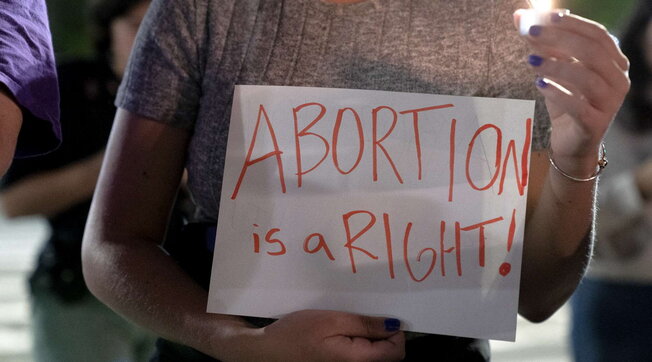 ABORTION
is a RIGHT!